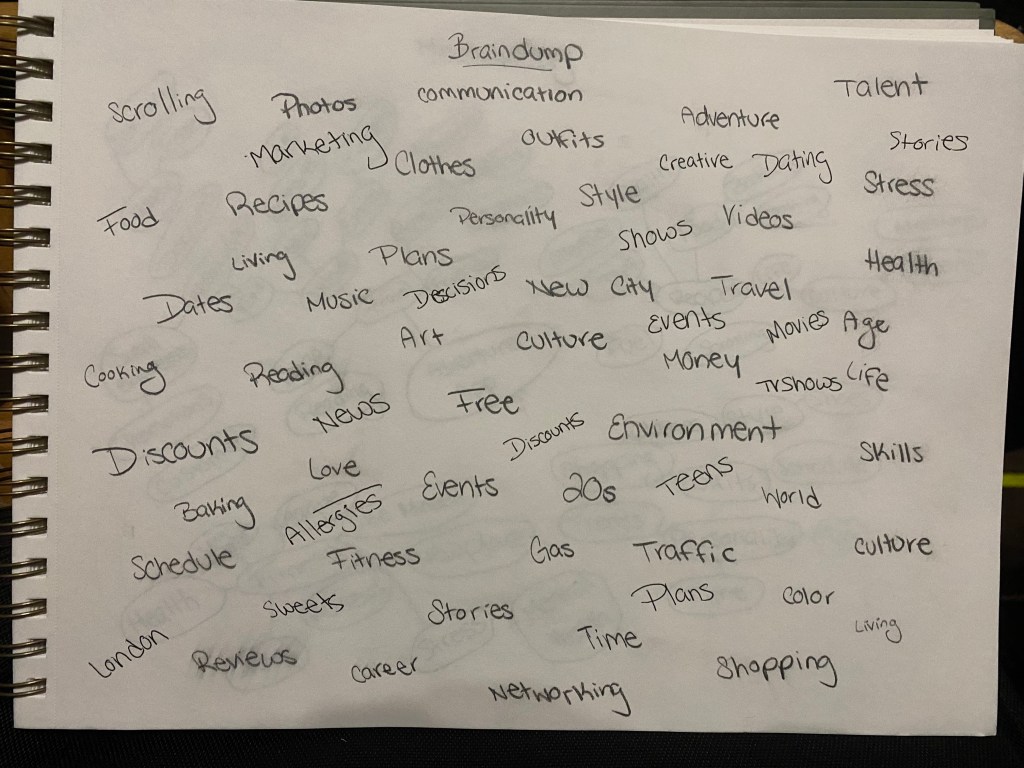 Braindump
Scrolling Photos communication Talent
Marketing Clothes Outfits Adventure Stories
Creative Dating Stress
Food Recipes Personality Style Shows Videos
Living Plans Health
Dates Music Descisions New City Travel
Art Culture Events Movies Age
Cooking Reading Money TVShows Life
News Free
Discounts Discounts Environment Skills
Love
Baking Allergies Events 20s Teens World
Schedule Fitness Gas Traffic Culture
Sweets Stories Plans Color
London Reviews Career Time Shopping Living
Networking